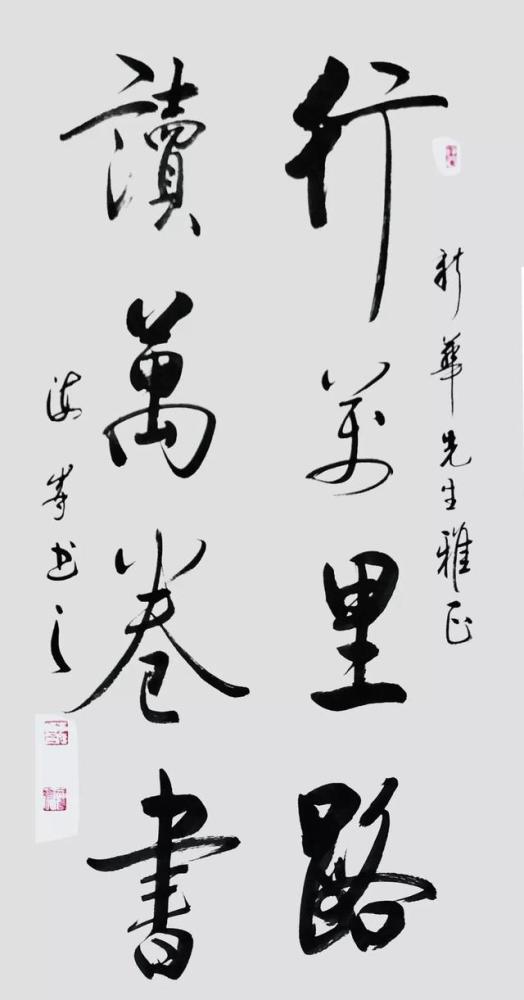 新華先生雅正
行萬里路
讀萬卷書
海书之